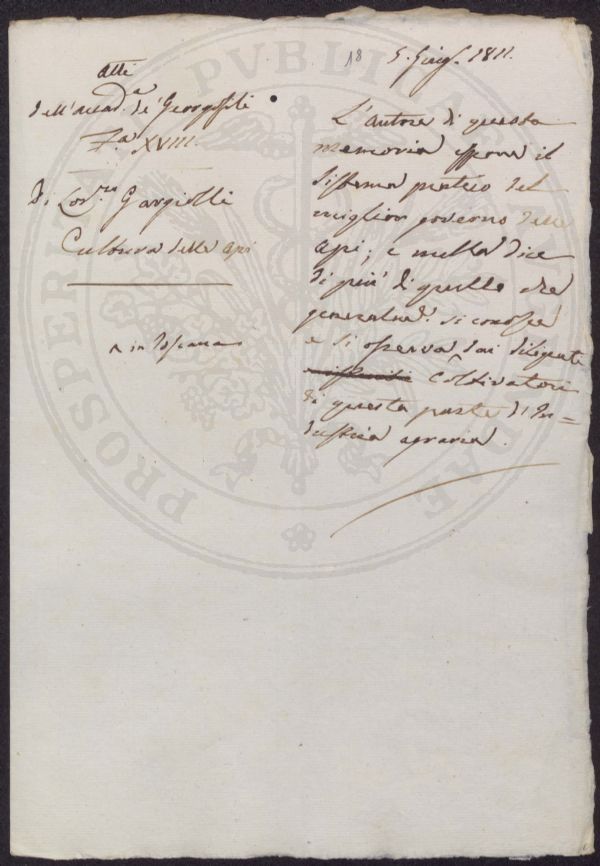 18
5. Giug. 1811.
Atti
dell'Accad.a de' Georgofili
F.a XVIII.
Di Lor.zo Gargiolli
Cultura delle Api
^ in Toscana
L'autore di questa
memoria espone il
sistema pratico del
miglior governo delle
Api; e nulla dice
di più di quello che
generalme. si conosce
e si osserva dai diligenti
Coltivatori
di questa parte d'In=
dustria agraria.
PROSPERITATI PUBLICAE AUGENDAE